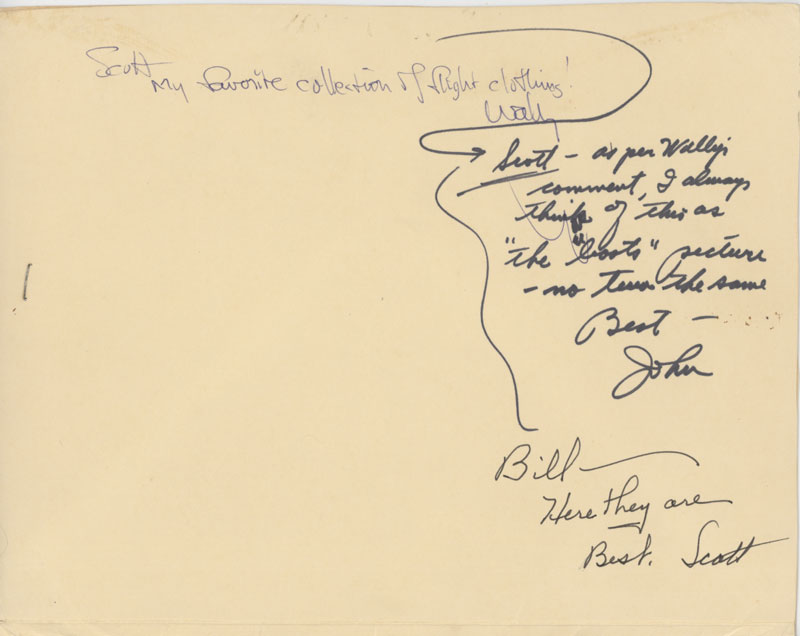 Scott
My favorite collection of flight clothing!
Wally
Scott - as per Wally's
comment, I always
think of this as
"the "boots" picture
- no two the same
Best -
John
Bill -
Here they are
Best. Scott